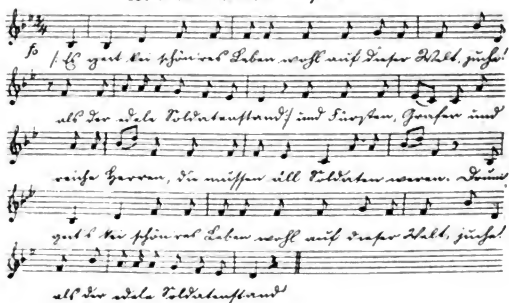 /: Es geit kei schön'res Leben wohl auf dieser Welt, juche!
als der edele Soldatenstand :/ und Fürsten, Grafen und
reiche Herren, die müssen all Soldaten weren. Drum
geit's kei schön'res Leben wohl auf dieser Welt, juche!
als der edele Soldatenstand